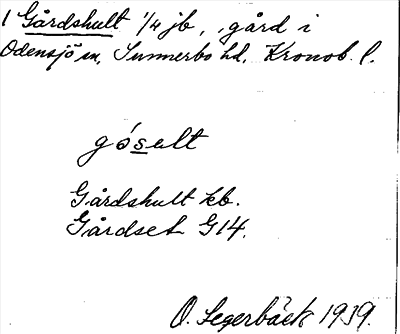 1 Gårdshult 1/4 jb, gård i
Odensjö sn, Sunnerbo hd, Kronob. l.
gósult
Gårdshult kb.
Gårdset G14.
O. Segerbäck 1939.